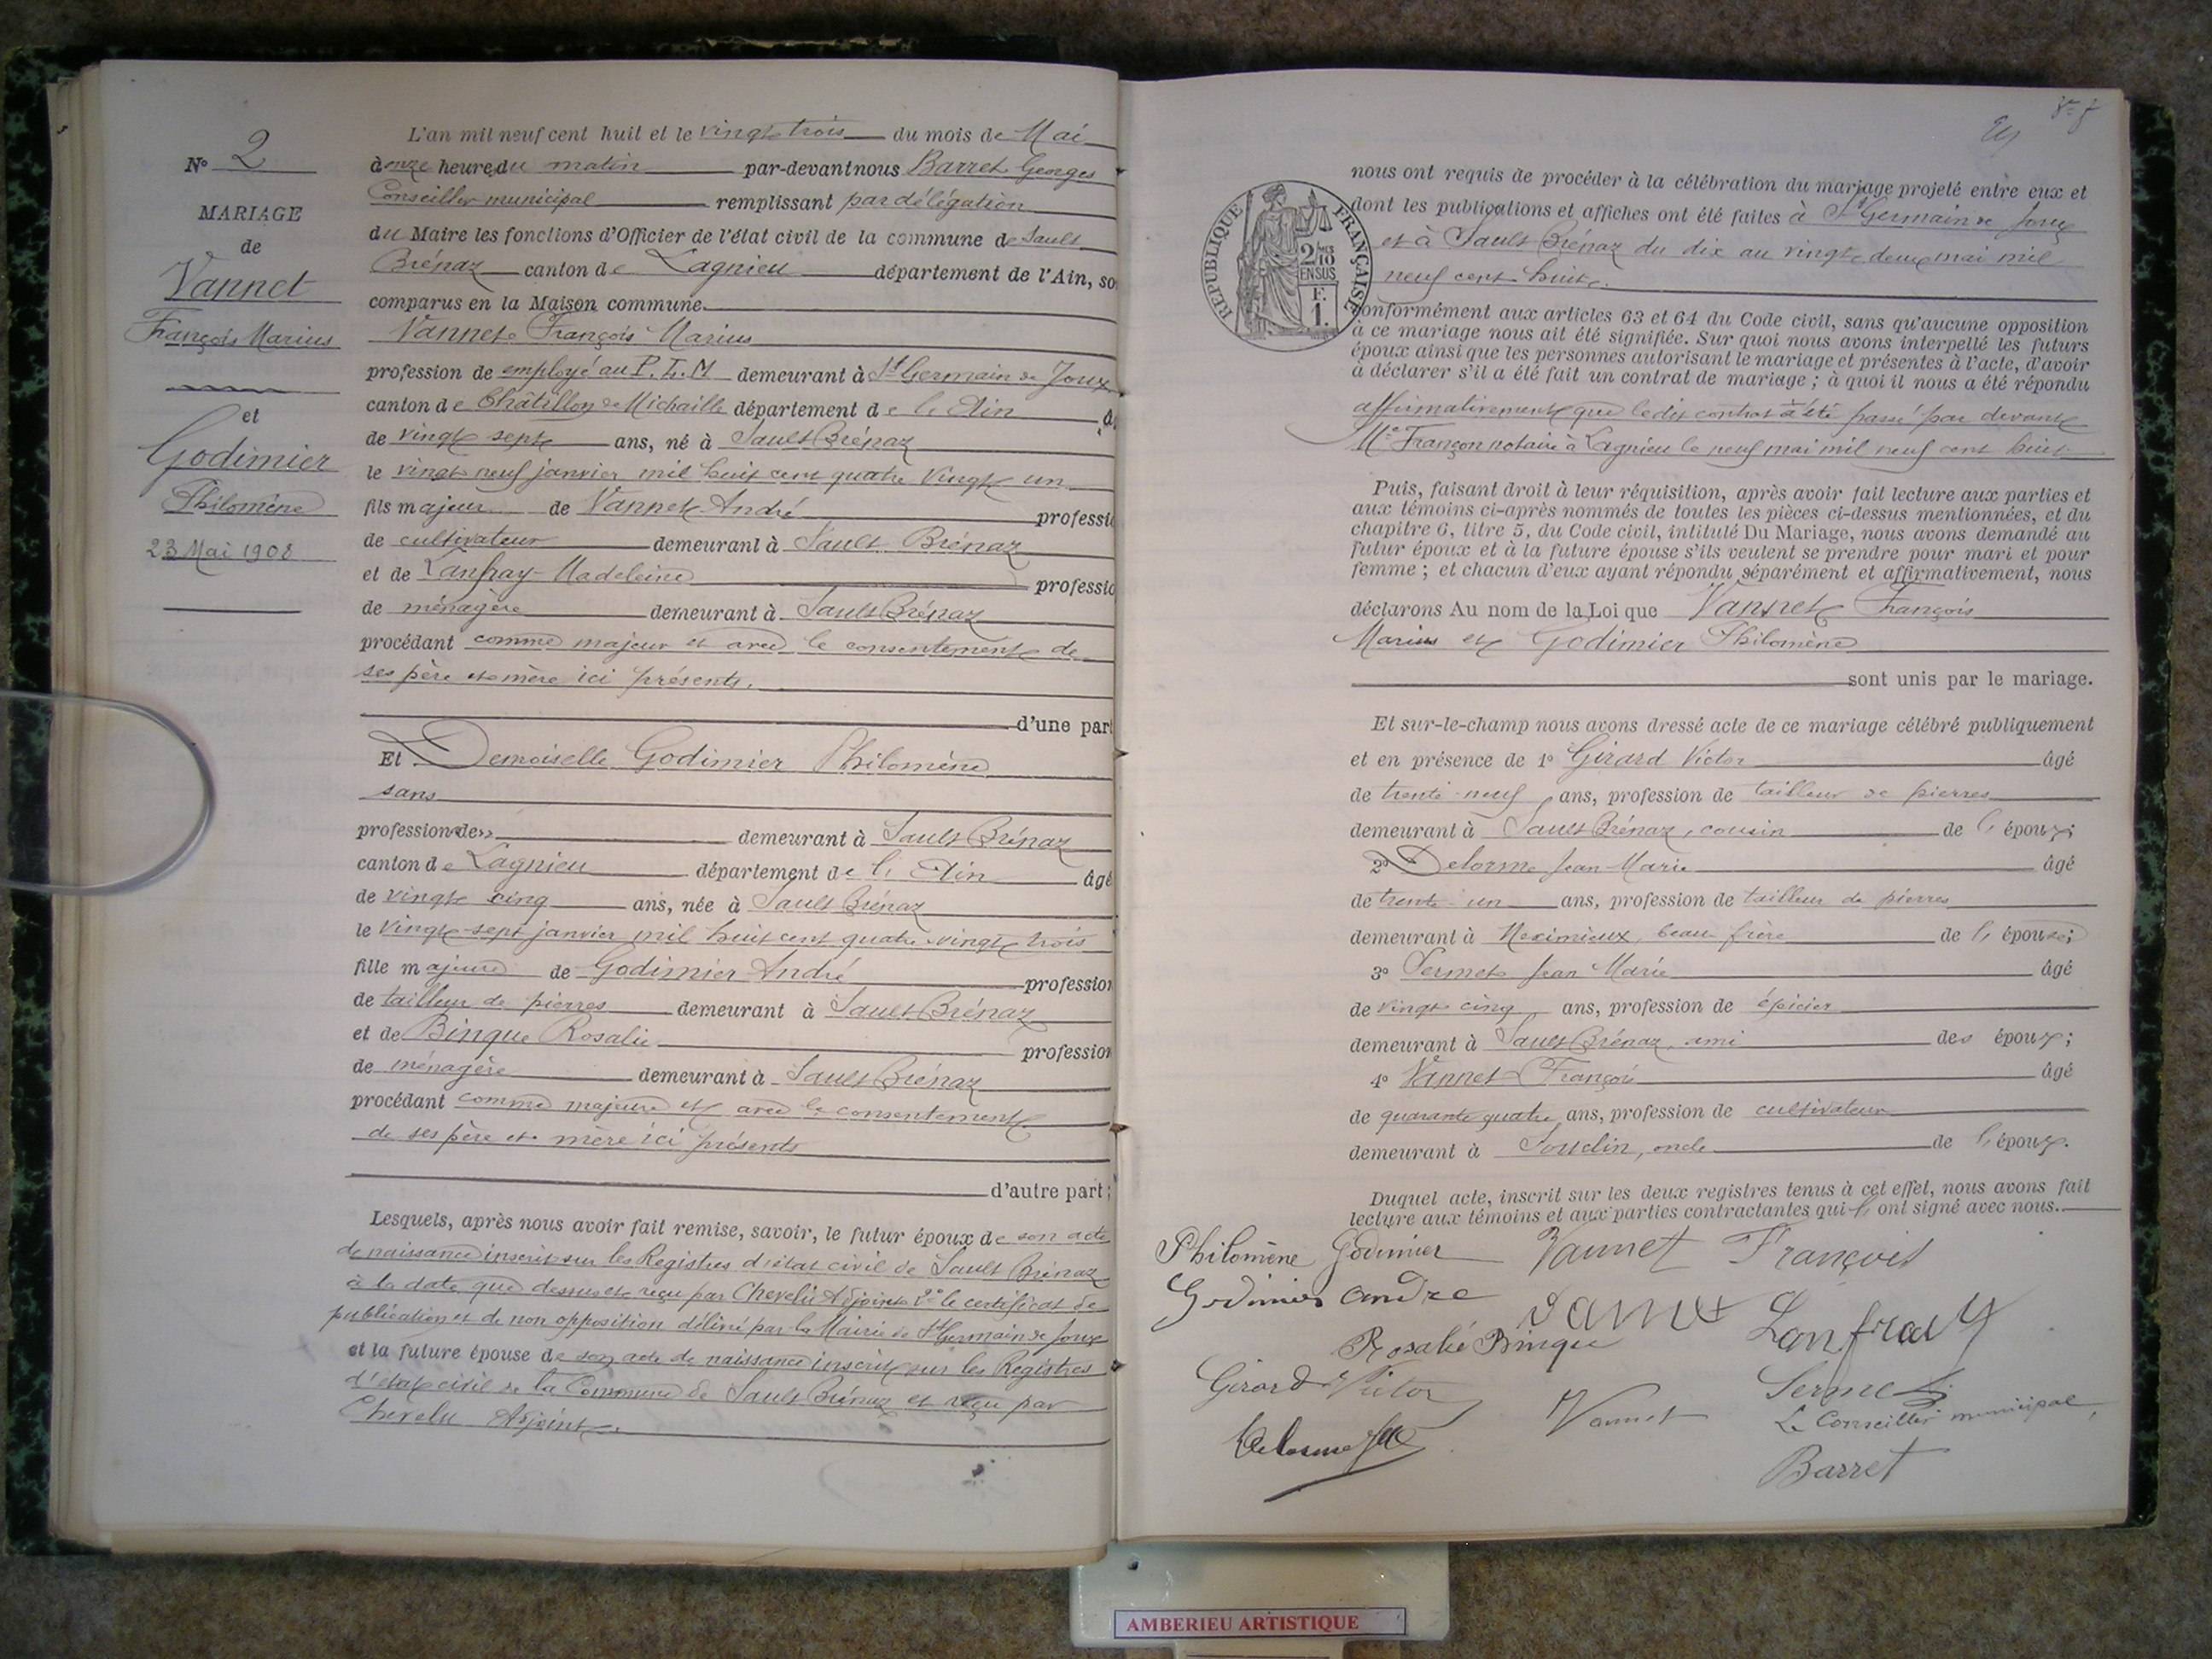 N° 2
MARIAGE
de
Vannet
François Marius
et
Godimier
Philomène
23 Mai 1908
L'an mil neuf cent huit et le vingt trois du mois de Mai
à onze heures du matin par-devant nous Barret Georges
Conseiller municipal remplissant par délégation
du Maire les fonctions d'Officier de l'état civil de la commune de Sault
Brénaz canton de Lagnieu département de l'Ain, so
comparus en la Maison commune
Vannet François Marius
profession de employé au P.L.M demeurant à St Germain de Joux
canton de Châtillon de Michaille département de l'Ain â
de vingt sept ans, né à Sault Brénaz
le vingt neuf janvier mil huit cent quatre vingt un
fils majeur de Vannet André professi
de cultivateur demeurant à Sault Brénaz
et de Lanfray Madeleine professio
de ménagère demeurant à Sault Brénaz
procédant comme majeur et avec le consentement de
ses père et mère ici présents.
d'une part
Et Demoiselle Godimier Philomène
sans
profession de » demeurant à Sault Brénaz
canton de Lagnieu département de l'Ain âgé
de vingt cinq ans, née à Sault Brénaz
le vingt-sept janvier mil huit cent quatre vingt trois
fille majeure de Godimier André profession
de tailleur de pierres demeurant à Sault Brénaz
et de Binque Rosalie profession
de ménagère demeurant à Sault Brénaz
procédant comme majeure et avec le consentement
de ses père et mère ici présents
d'autre part;
Lesquels, après nous avoir fait remise, savoir, le futur époux de son acte
de naissance inscrit sur les Registres d'état civil de Sault Brénaz
à la date que dessus et reçu par Chevelu Adjoint 2° le certificat de
publication et de non opposition délivré par la Mairie de St Germain de Joux
et la future épouse de son acte de naissance inscrit sur les Registres
d'état civil de la Commune de Sault Brénaz et reçu par
Chevelu Adjoint.
nous ont requis de procéder à la célébration du mariage projeté entre eux et
dont les publications et affiches ont été faites à St Germain de Joux
et à Sault Brénaz du dix au vingt deux mai mil
neuf cent huit.
RÉPUBLIQUE FRANÇAISE
2/10
EN SUS
F.
1.
conformément aux articles 63 et 64 du Code civil, sans qu'aucune opposition
à ce mariage nous ait été signifiée. Sur quoi nous avons interpellé les futurs
époux ainsi que les personnes autorisant le mariage et présentes à l'acte, d'avoir
à déclarer s'il a été fait un contrat de mariage ; à quoi il nous a été répondu
affirmativement que ledit contrat a été passé par devant
Me Françon notaire à Lagnieu le neuf mai mil neuf cent huit
Puis, faisant droit à leur réquisition, après avoir fait lecture aux parties et
aux témoins ci-après nommés de toutes les pièces ci-dessus mentionnées, et du
chapitre 6, titre 5, du Code civil, intitulé Du Mariage, nous avons demandé au
futur époux et à la future épouse s'ils veulent se prendre pour mari et pour
femme ; et chacun d'eux ayant répondu séparément et affirmativement, nous
déclarons Au nom de la Loi que Vannet François
Marius et Godimier Philomène
sont unis par le mariage.
Et sur-le-champ nous avons dressé acte de ce mariage célébré publiquement
et en présence de 1° Girard Victor âgé
de trente-neuf ans, profession de tailleur de pierres
demeurant à Sault Brénaz, cousin de l'époux;
2° Delorme Jean-Marie âgé
de trente-un ans, profession de tailleur de pierres
demeurant à Meximieux, beau frère de l'épouse;
3° Sermet Jean Marie âgé
de vingt cinq ans, profession de épicier
demeurant à Sault Brénaz, ami des époux;
4° Vannet François âgé
de quarante quatre ans, profession de cultivateur
demeurant à Soudin, oncle de l'époux.
Duquel acte, inscrit sur les deux registres tenus à cet effet, nous avons fait
lecture aux témoins et aux parties contractantes qui l'ont signé avec nous.
Philomène Godimier Vannet François
Godimier andre
Lanfray
Rosalie Binque
Girard Victor
Sermet
Vannet
Le Conseiller municipal,
Delorme
Barret
AMBERIEU ARTISTIQUE